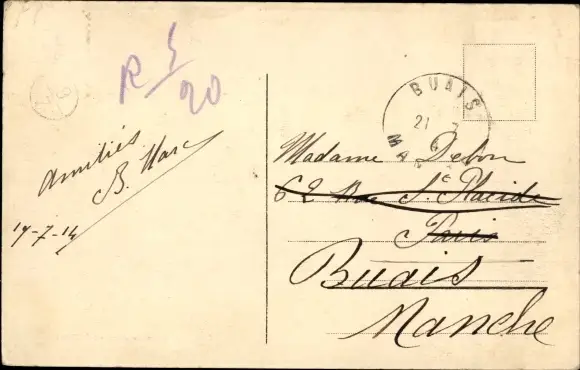 R 5
20
Amitiés
B. Marc
17-7-14
BUAIS
21 7
MAN
Madame Debon
62 Rue St. Placide
Paris
Buais
Manche